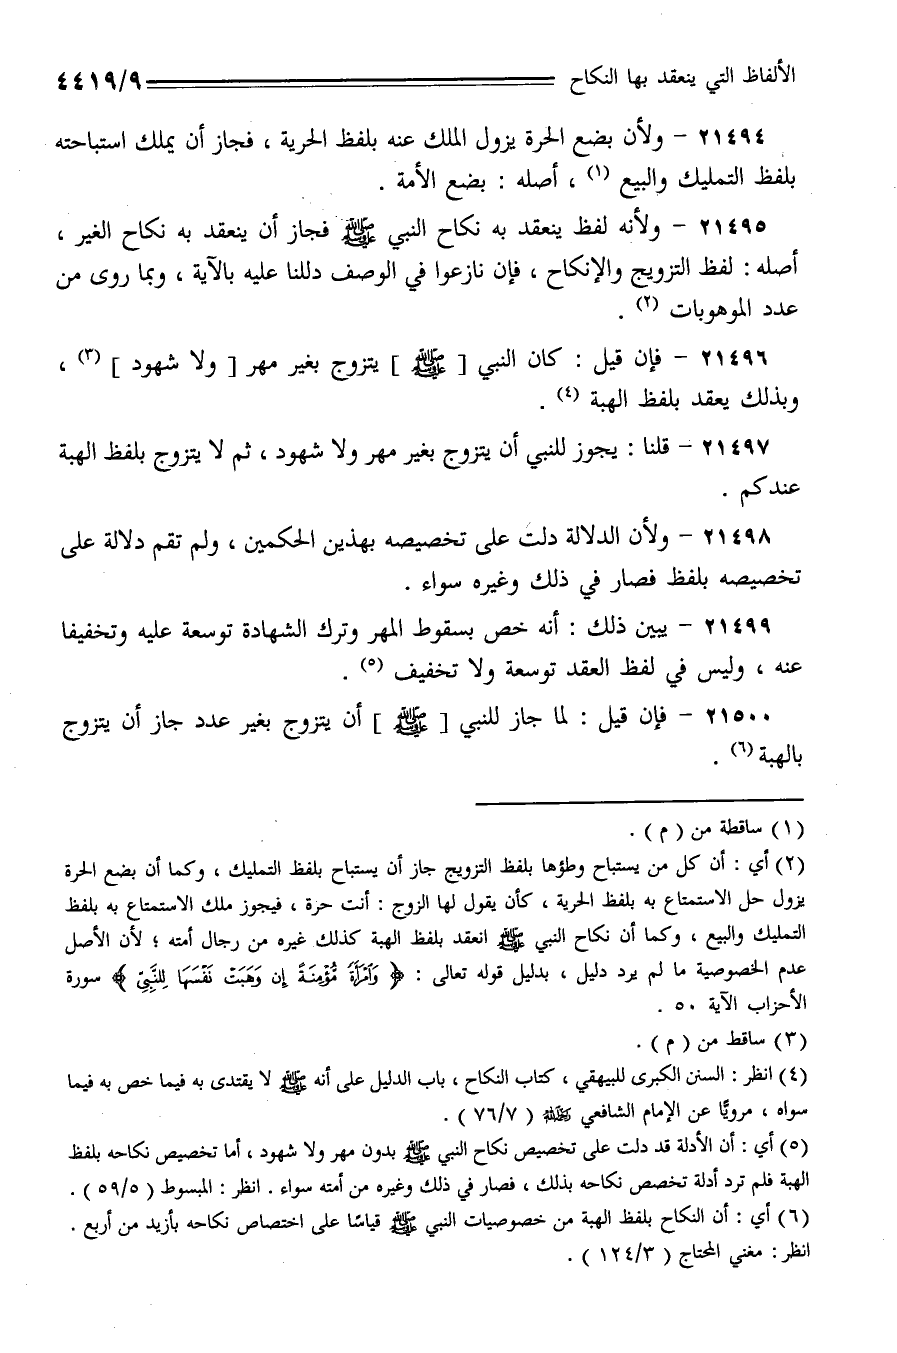 الألفاظ التي ينعقد بها النكاح ٤٤١٩/٩
٢١٤٩٤ - ولأن بضع الحرة يزول الملك عنه بلفظ الحرية ، فجاز أن يملك استباحته
بلفظ التمليك والبيع (١) ، أصله : بضع الأمة .
٢١٤٩٥ - ولأنه لفظ ينعقد به نكاح النبي ﷺ فجاز أن ينعقد به نكاح الغير ،
أصله : لفظ التزويج والإنكاح ، فإن نازعوا في الوصف دللنا عليه بالآية ، وبما روى من
عدد الموهوبات (٢) .
٢١٤٩٦ - فإن قيل : كان النبي [ ﷺ ] يتزوج بغير مهر [ ولا شهود ] (٣) ،
وبذلك يعقد بلفظ الهبة (٤) .
٢١٤٩٧ - قلنا : يجوز للنبي أن يتزوج بغير مهر ولا شهود ، ثم لا يتزوج بلفظ الهبة
عندكم .
٢١٤٩٨ - ولأن الدلالة دلت على تخصيصه بهذين الحكمين ، ولم تقم دلالة على
تخصيصه بلفظ فصار في ذلك وغيره سواء .
٢١٤٩٩ - يبين ذلك : أنه خص بسقوط المهر وترك الشهادة توسعة عليه وتخفيفا
عنه ، وليس في لفظ العقد توسعة ولا تخفيف (٥) .
٢١٥٠٠ - فإن قيل : لما جاز للنبي [ ﷺ ] أن يتزوج بغير عدد جاز أن يتزوج
بالهبة (٦) .
(١) ساقطة من ( م ) .
(٢) أي : أن كل من يستباح وطؤها بلفظ التزويج جاز أن يستباح بلفظ التمليك ، وكما أن بضع الحرة
يزول حل الاستمتاع به بلفظ الحرية ، كأن يقول لها الزوج : أنت حرة ، فيجوز ملك الاستمتاع به بلفظ
التمليك والبيع ، وكما أن نكاح النبي ﷺ انعقد بلفظ الهبة كذلك غيره من رجال أمته ؛ لأن الأصل
عدم الخصوصية ما لم يرد دليل ، بدليل قوله تعالى : ﴿ وَٱمْرَأَةً مُّؤْمِنَةً إِن وَهَبَتْ نَفْسَهَا لِلنَّبِيِّ ﴾ سورة
الأحزاب الآية ٥٠ .
(٣) ساقط من ( م ) .
(٤) انظر : السنن الكبرى للبيهقي ، كتاب النكاح ، باب الدليل على أنه ﷺ لا يقتدى به فيما خص به فيما
سواه ، مرويًّا عن الإمام الشافعي رحمه الله ( ٧٦/٧ ) .
(٥) أي : أن الأدلة قد دلت على تخصيص نكاح النبي ﷺ بدون مهر ولا شهود ، أما تخصيص نكاحه بلفظ
الهبة فلم ترد أدلة تخصص نكاحه بذلك ، فصار في ذلك وغيره من أمته سواء . انظر : المبسوط ( ٥٩/٥ ) .
(٦) أي : أن النكاح بلفظ الهبة من خصوصيات النبي ﷺ قياسًا على اختصاص نكاحه بأزيد من أربع .
انظر : مغني المحتاج ( ١٢٤/٣ ) .